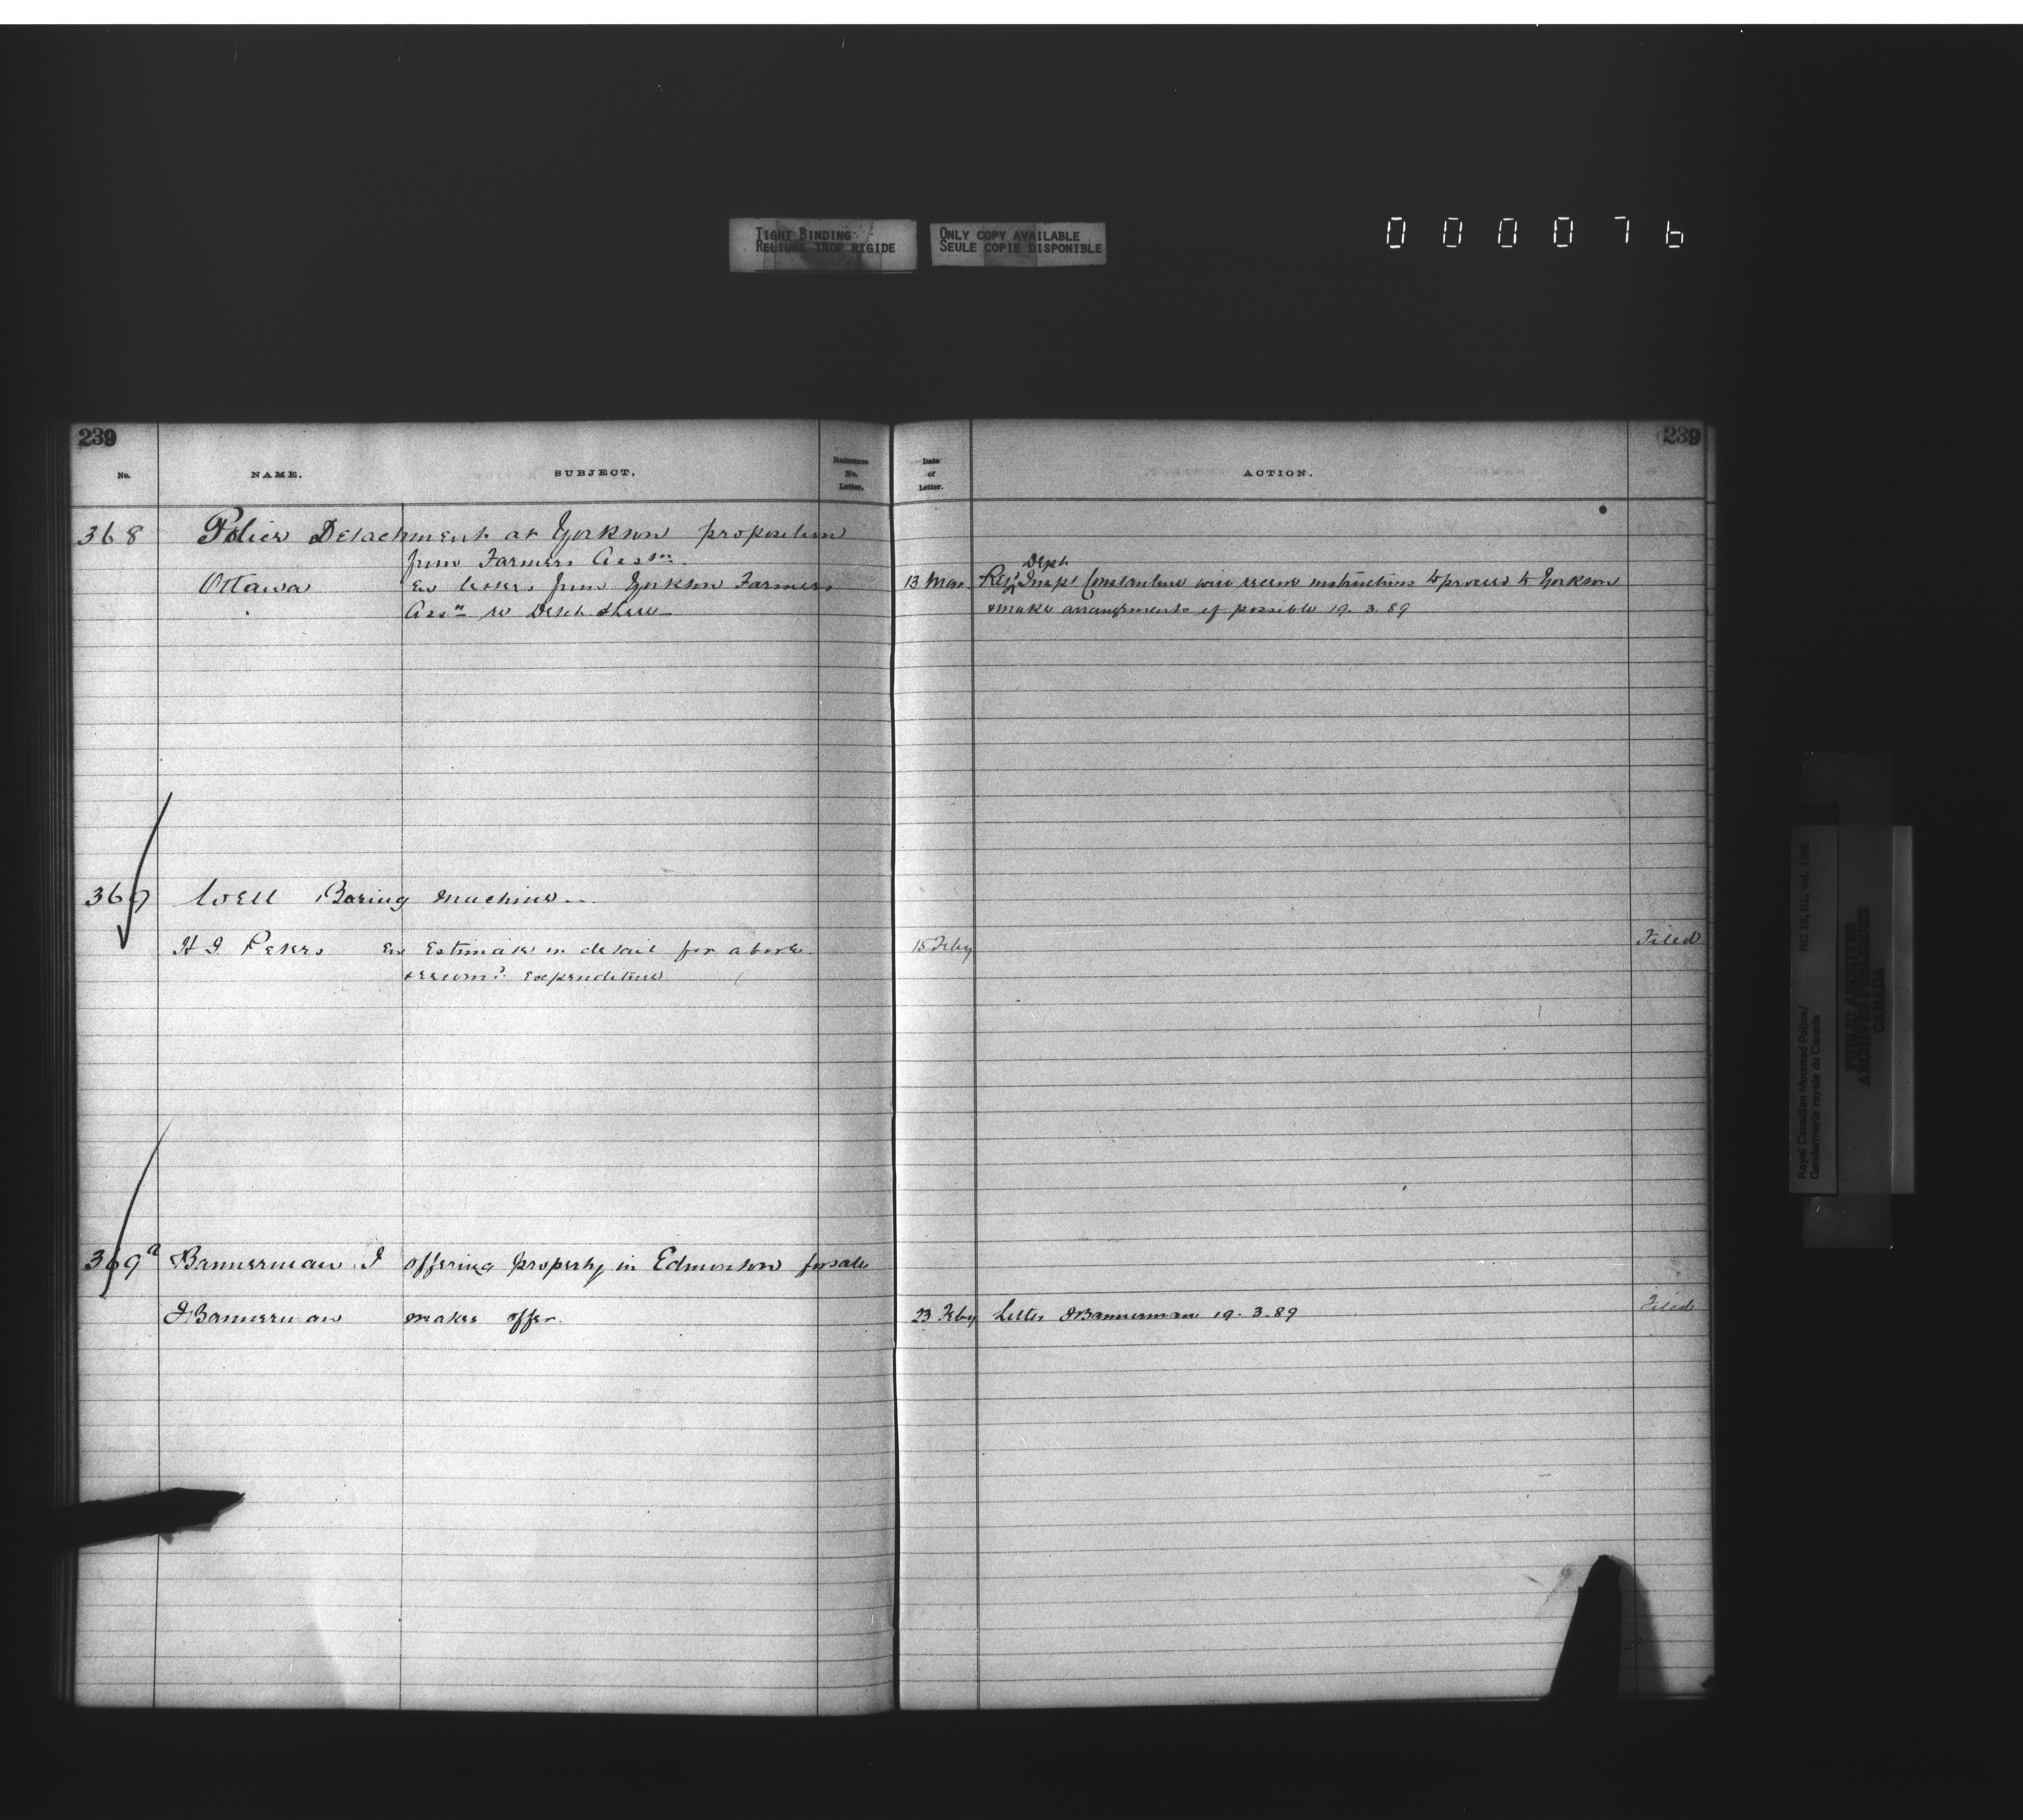 TIGHT BINDING
RELIURE TROP RIGIDE
ONLY COPY AVAILABLE
SEULE COPIE DISPONIBLE
000076
239
No.
NAME.
SUBJECT.
Reference
No.
Letter.
Date
of
Letter.
ACTION.
239
368 Police Detachment at Yorkson proposition
from Farmers Assn.
Ottawa En letters from Yorkson Farmers
Assn re Detch there
13 Mar. Dept
Insp' Constantine will receive instructions to proceed to Yorkson
& make arrangements if possible 19.3.89
369 Well Boring Machine
H J Peters En Estimate in detail for above
& recomd. Expenditure
15 Feby
Filed
369a Bannerman J offering property in Edmonton for sale
J Bannerman makes offer.
23 Feby Letter J Bannerman 19.3.89
Filed
Royal Canadian Mounted Police/
Gendarmerie royale du Canada
RG 18, B1, vol. 1996
PUBLIC ARCHIVES
ARCHIVES PUBLIQUES
CANADA